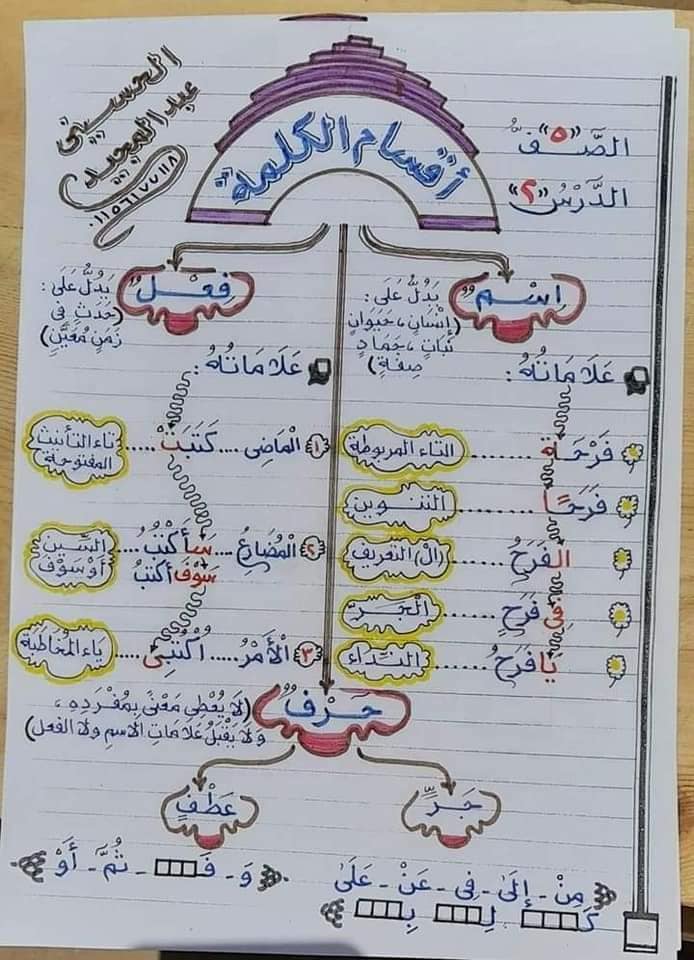 الصَّــفُّ "٥"
الدَّرْسُ "٢"
الحسيني
عبد المجيد
٠١١٥٦١٧٧١١٨
أقسام الكلمة
اِسْمٌ
يَدُلُّ عَلَى :
(إِنْسَانٍ ، حَيَوَانٍ
نَبَاتٍ ، جَمَادٍ
صِفَةٍ)
عَلَامَاتُهُ :
فَرْحَـة ....... التاء المربوطة
فَرَحًا ....... التنوين
الفَرَحُ ....... (ال) التعريف
فِي فَرَحٍ ....... الْجَر
يَا فَرَحُ ....... النِّدَاء
فِعْـلٌ
يَدُلُّ عَلَى :
(حَدَثٍ فِي
زَمَنٍ مُعَيَّنٍ)
عَلَامَاتُهُ :
١ الْمَاضِى .... كَتَبَتْ ...... تاء التأنيث
المفتوحة
٢ الْمُضَارِعُ .... سَأَكْتُبُ ...... السِّين
سَوْفَ أكتبُ أو سَوْفَ
٣ الْأَمْرُ ..... اُكْتُبِى ...... يَاء المُخَاطبة
حَـرْفٌ
(لَا يُعْطِى مَعْنًى بِمُفْرَدِهِ ،
وَلَا يَقْبَلُ عَلَامَاتِ الاسمِ ولا الفعل)
جَـرٍّ
مِنْ - إِلَى - فِى - عَنْ - عَلَى
كَـ لِـ بِـ
عَطْفٍ
وَ - فَـ - ثُمَّ - أَوْ